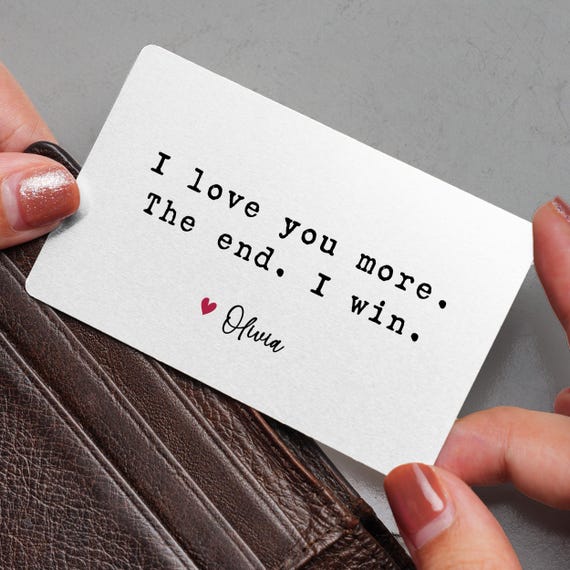 I love you more.
The end. I win.
♥ Olivia